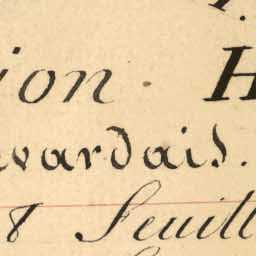 ion. H
avardais.
8 Feuill